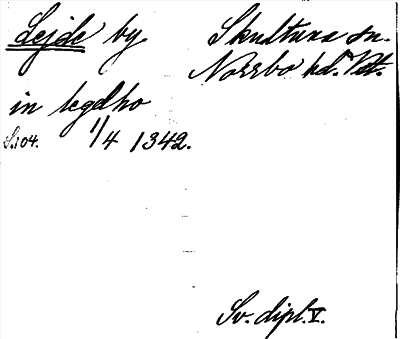 Lejde by
Skultuna sn.
Norrbo hd. Vstm.
in legdho
S. 104. 1/4 1342.
Sv. dipl. V.